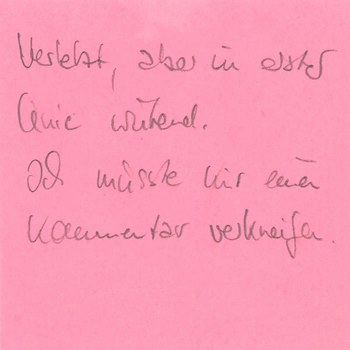 Verletzt, aber in erster
Linie wütend.
Ich müsste mir einen
Kommentar verkneifen.